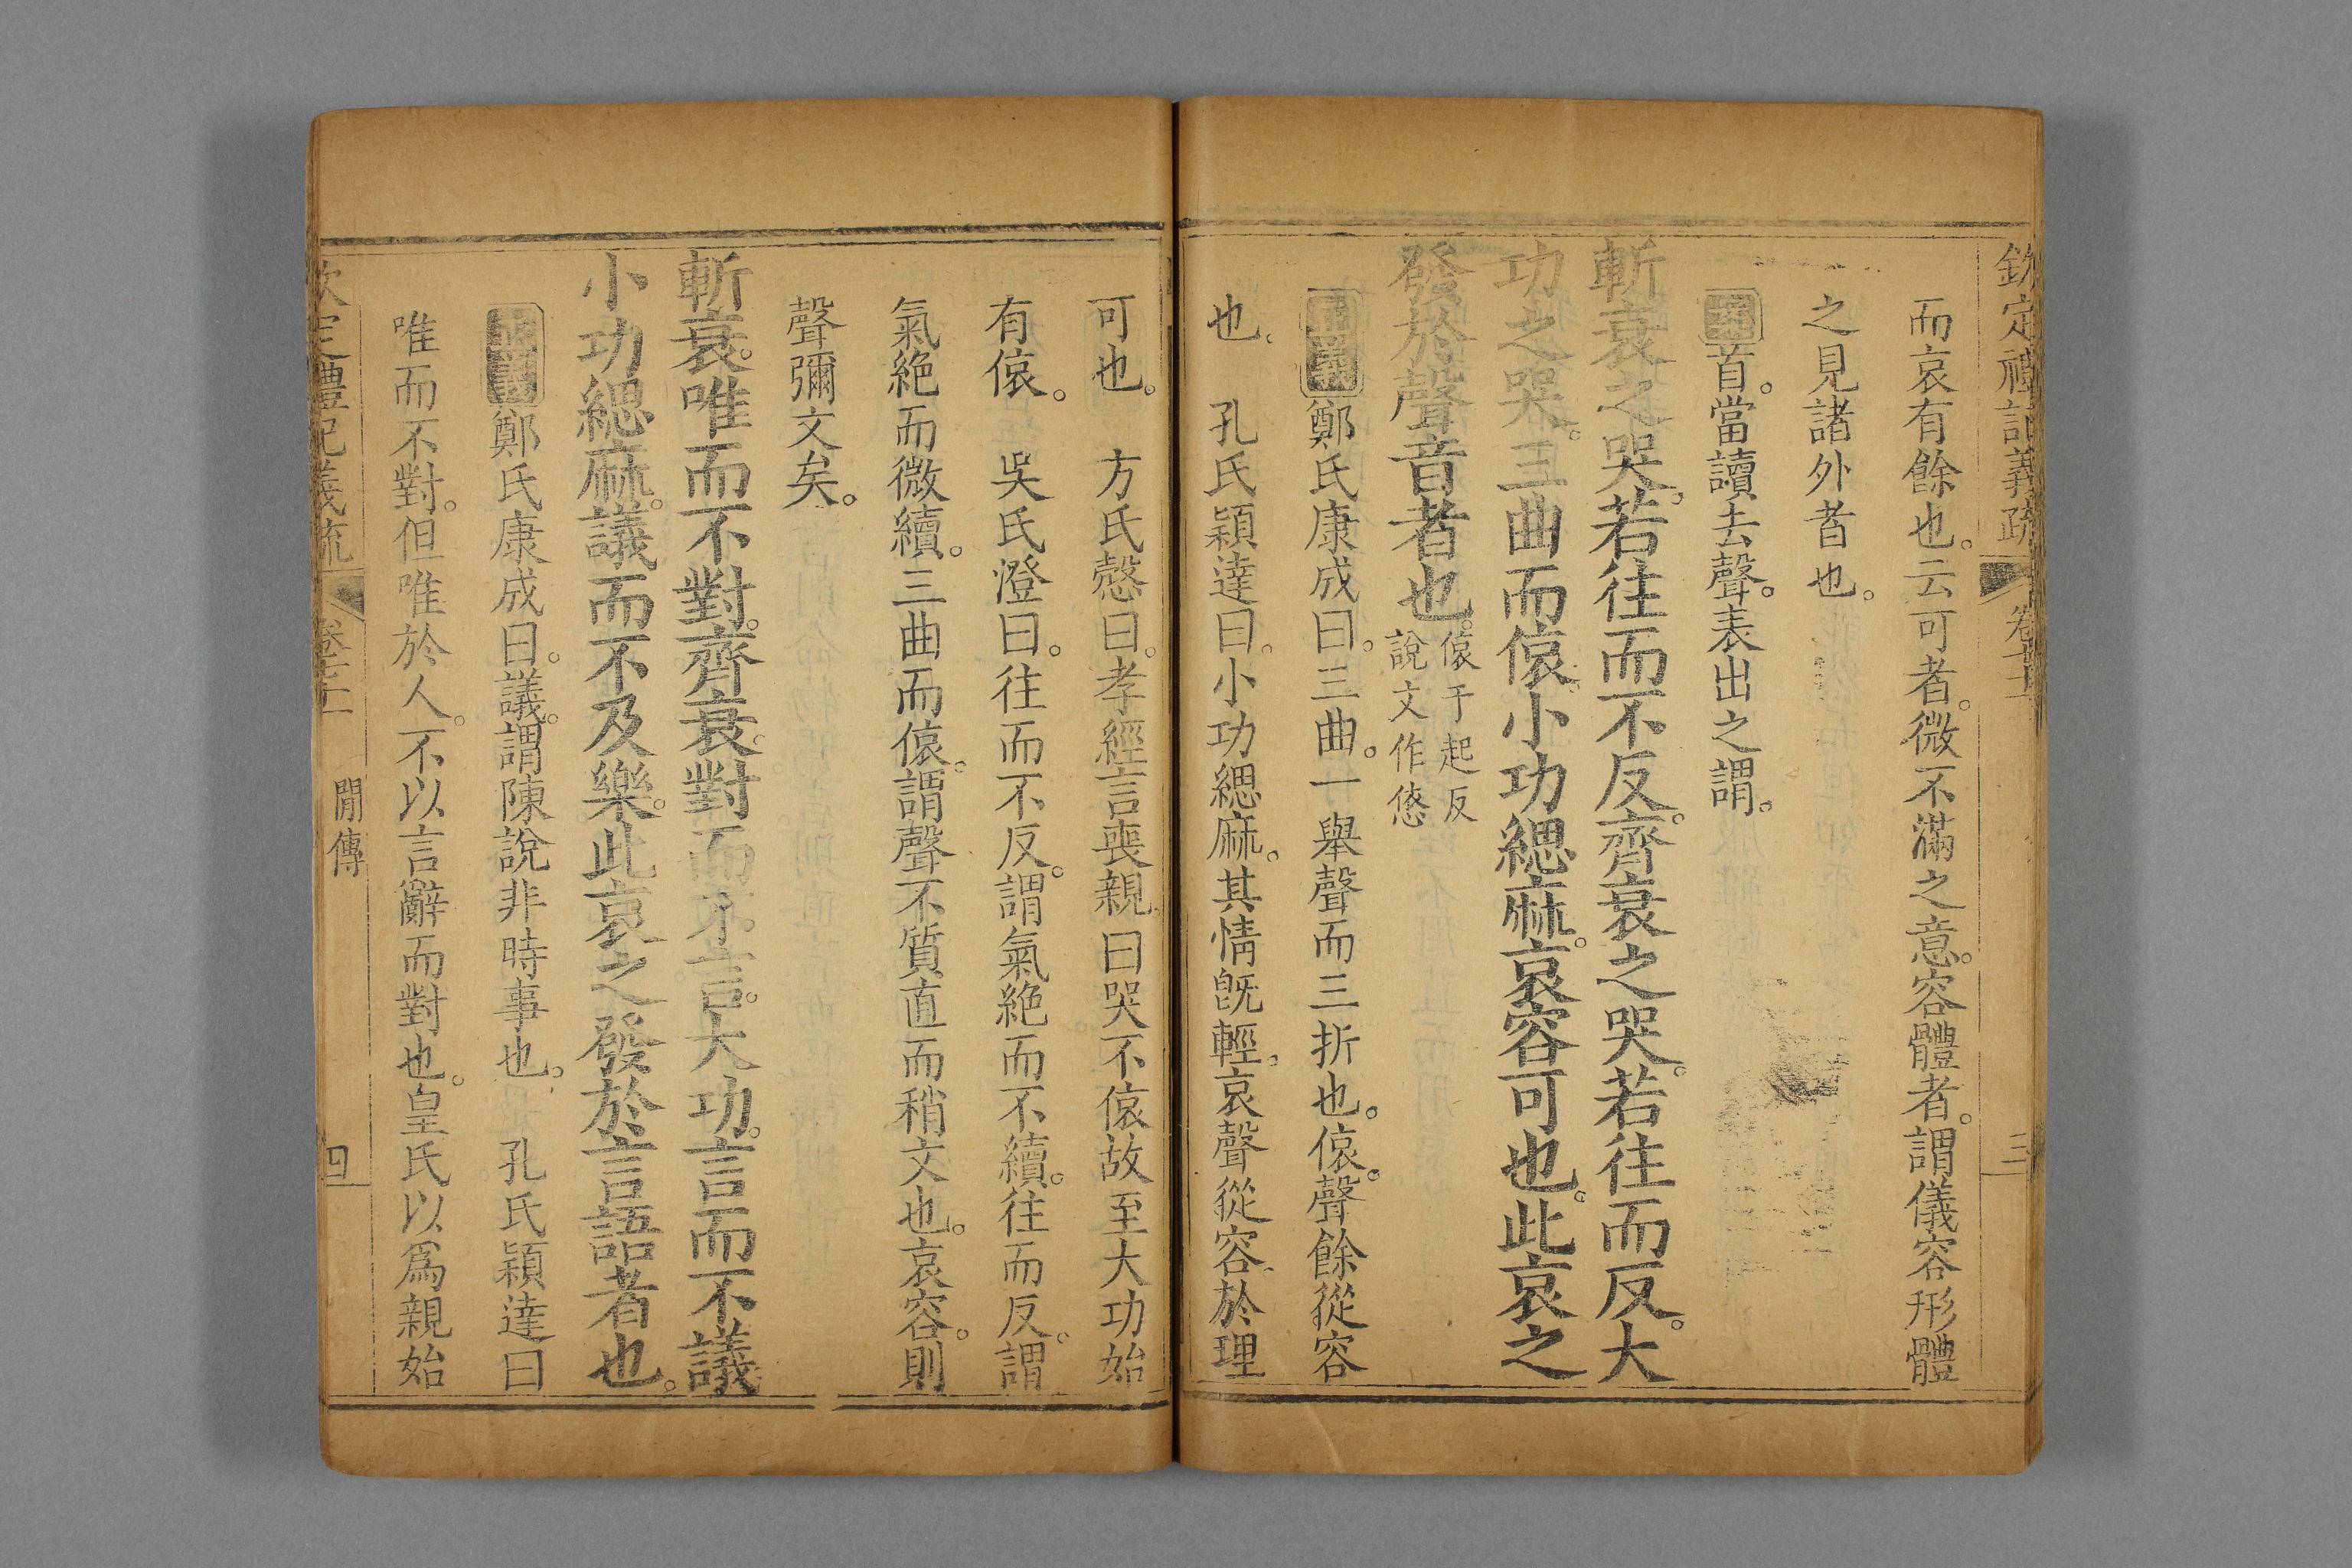 欽定禮記義疏 卷七十二 三
而哀有餘也。云可者。微不滿之意。容體者。謂儀容形體
之見諸外者也。
首。當讀去聲。表出之謂。
斬衰之哭。若往而不反。齊衰之哭。若往而反。大
功之哭。三曲而偯。小功緦麻。哀容可也。此哀之
發於聲音者也。偯于起反
說文作㥋
正義鄭氏康成曰。三曲。一舉聲而三折也。偯。聲餘從容
也。 孔氏穎達曰。小功緦麻。其情旣輕。哀聲從容。於理
可也。 方氏慤曰。孝經言喪親曰哭不偯故至大功始
有偯。 吳氏澄曰。往而不反。謂氣絶而不續。往而反。謂
氣絶而微續。三曲而偯。謂聲不質直而稍文也。哀容。則
聲彌文矣。
斬衰。唯而不對。齊衰。對而不言。大功。言而不議
小功緦麻。議而不及樂。此哀之發於言語者也。
正義鄭氏康成曰。議。謂陳說非時事也。 孔氏穎達曰
唯而不對。但唯於人。不以言辭而對也。皇氏以爲親始
欽定禮記義疏 卷七十二 閒傳 四